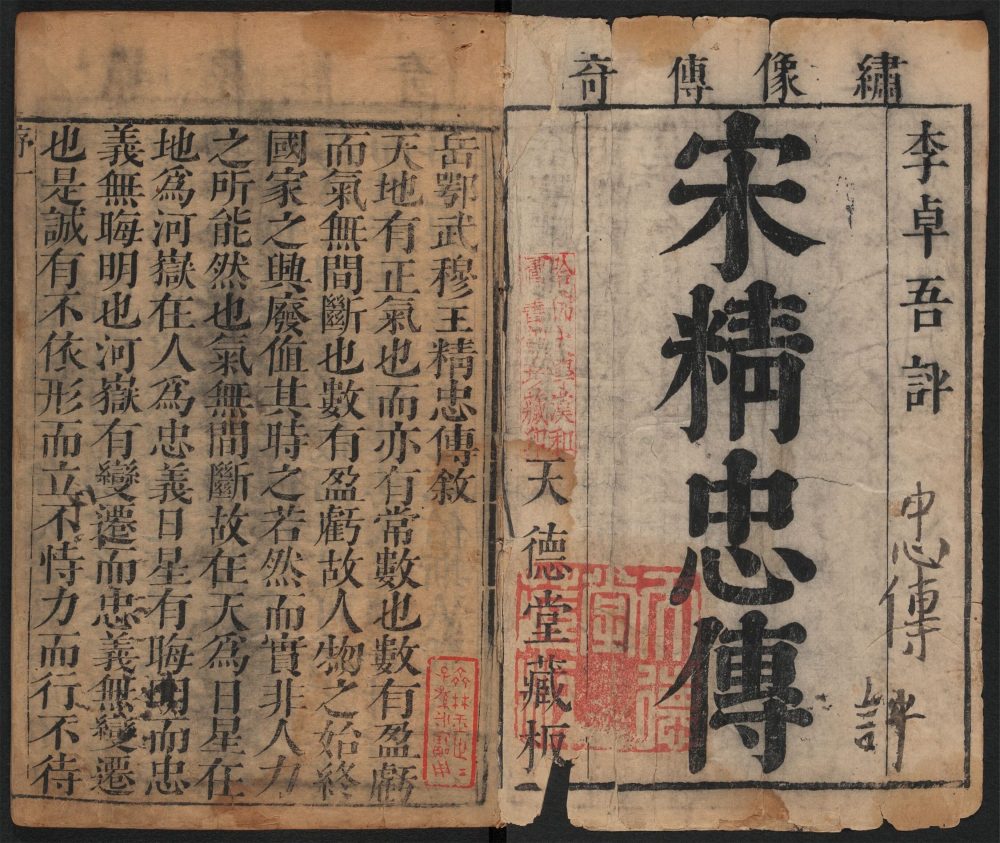 繡像傳奇
李卓吾評
忠傳
宋精忠傳
天德堂藏板
岳鄂武穆王精忠傳敘
天地有正氣也而亦有常數也數有盈虧
而氣無間斷也數有盈虧故人物之始終
國家之興廢值其時之若然而實非人力
之所能然也氣無間斷故在天爲日星在
地爲河嶽在人爲忠義日星有晦明而忠
義無晦明也河嶽有變遷而忠義無變遷
也是誠有不依形而立不恃力而行不待
序一